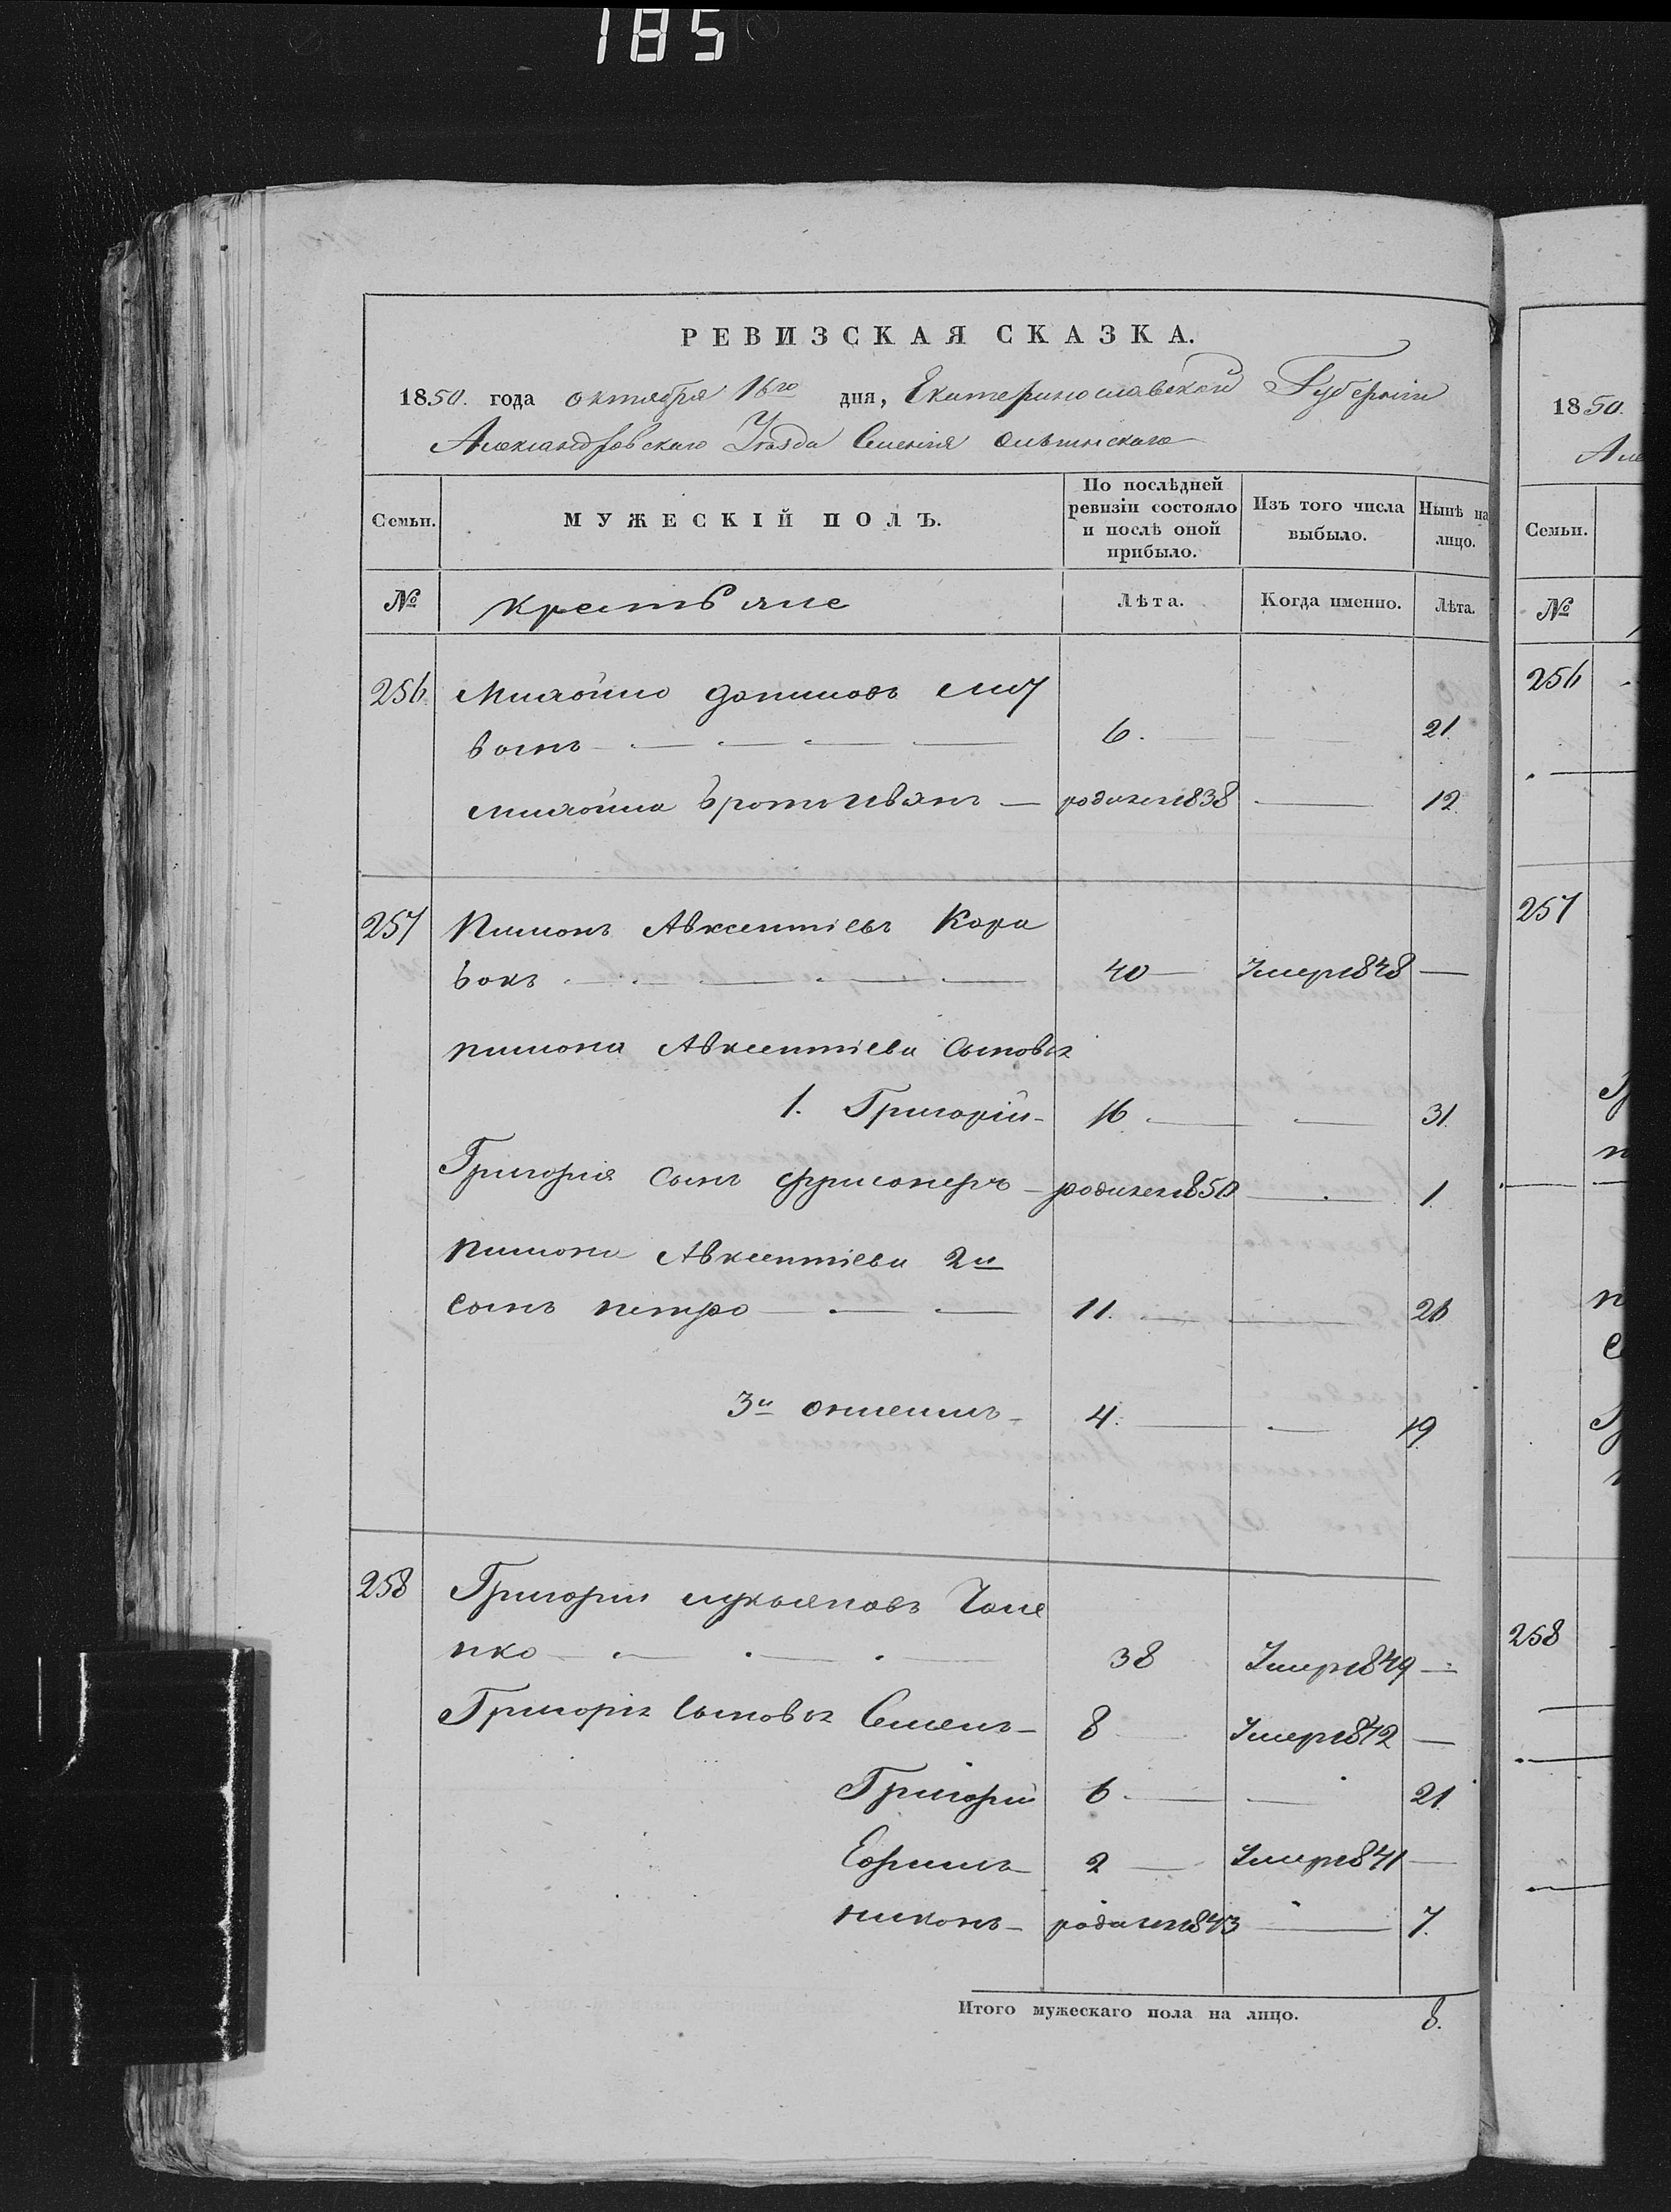 185
РЕВИЗСКАЯ СКАЗКА.
1850. года октября 16го дня, Екатеринославской Губерніи
Александровскаго Уѣзда Селенія
Семьи. МУЖЕСКІЙ ПОЛЪ. По послѣдней ревизіи состояло и послѣ оной прибыло. Изъ того числа выбыло. Нынѣ на лицо.
№ крестьяне Лѣта. Когда именно. Лѣта.
256
6. 21.
братъ Иванъ родился 1838 12.
257 Пимонъ Авксентіевъ Кора
бокъ 40 Умеръ 1848
пимона Авксентіева Сыновья
1. Григорій 16 31.
Григорія Сынъ родился 1850 1.
пимона Авксентіева 2й
Сынъ петро 11. 26
3й 4. 19.
258 Григорій лукьяновъ
нко 38 Умеръ 1849
Григорія Сыновья Семенъ 8 Умеръ 1842
Григорій 6 21.
Ефимъ 2 Умеръ 1841
никонъ родился 1843 7.
Итого мужескаго пола на лицо. 8.
1850.
Але
Семьи.
№
256
257
258